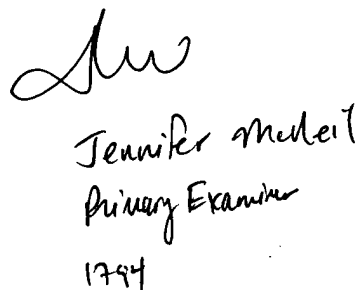 Jennifer McNeil
Primary Examiner
1794